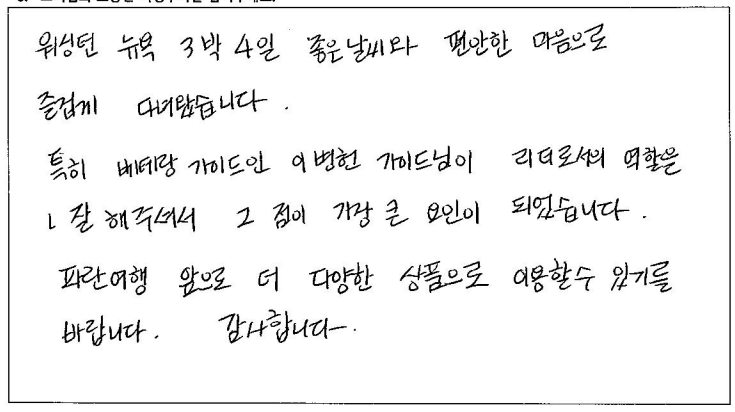 워싱턴 뉴욕 3박 4일 좋은 날씨와 편안한 마음으로
즐겁게 다녀왔습니다.
특히 베테랑 가이드인 이병헌 가이드님이 리더로서의 역할을
잘 해주셔서 그 점이 가장 큰 요인이 되었습니다.
파란여행 앞으로 더 다양한 상품으로 이용할 수 있기를
바랍니다. 감사합니다.